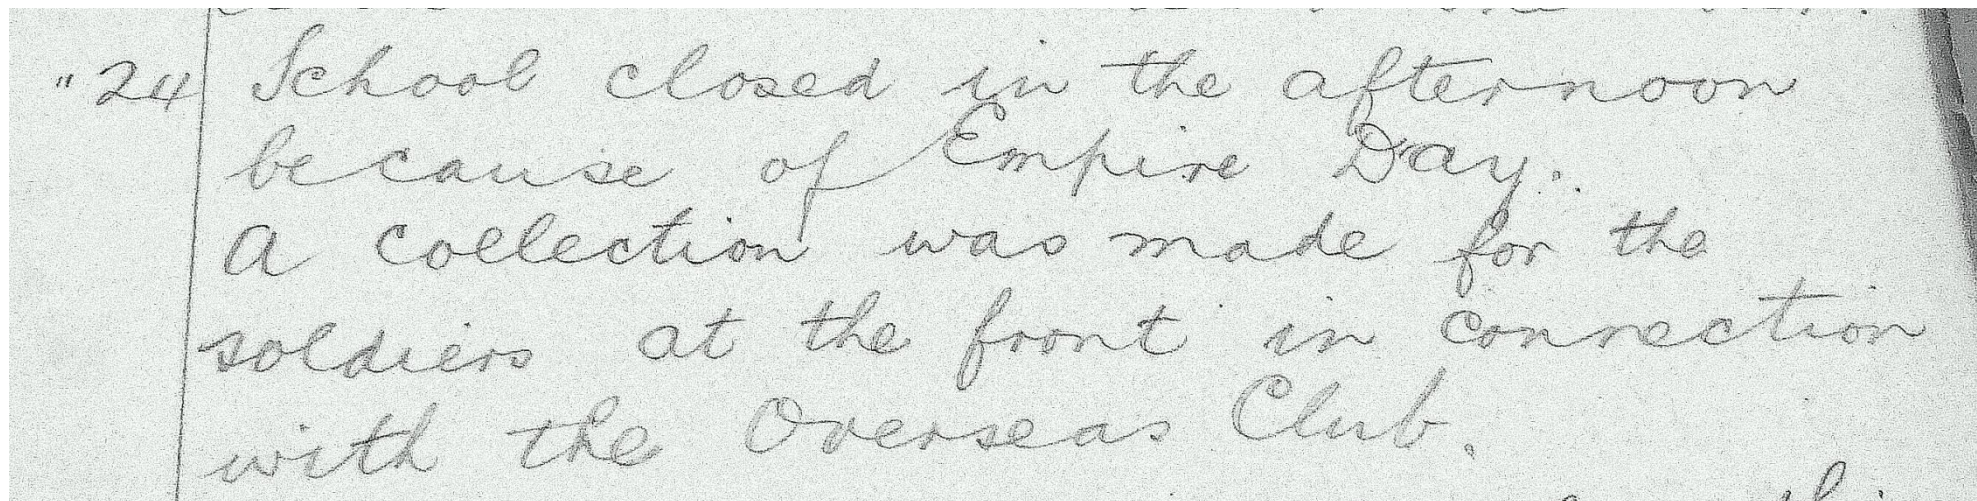 "24 School closed in the afternoon
because of Empire Day.
A collection was made for the
soldiers at the front in connection
with the Overseas Club.